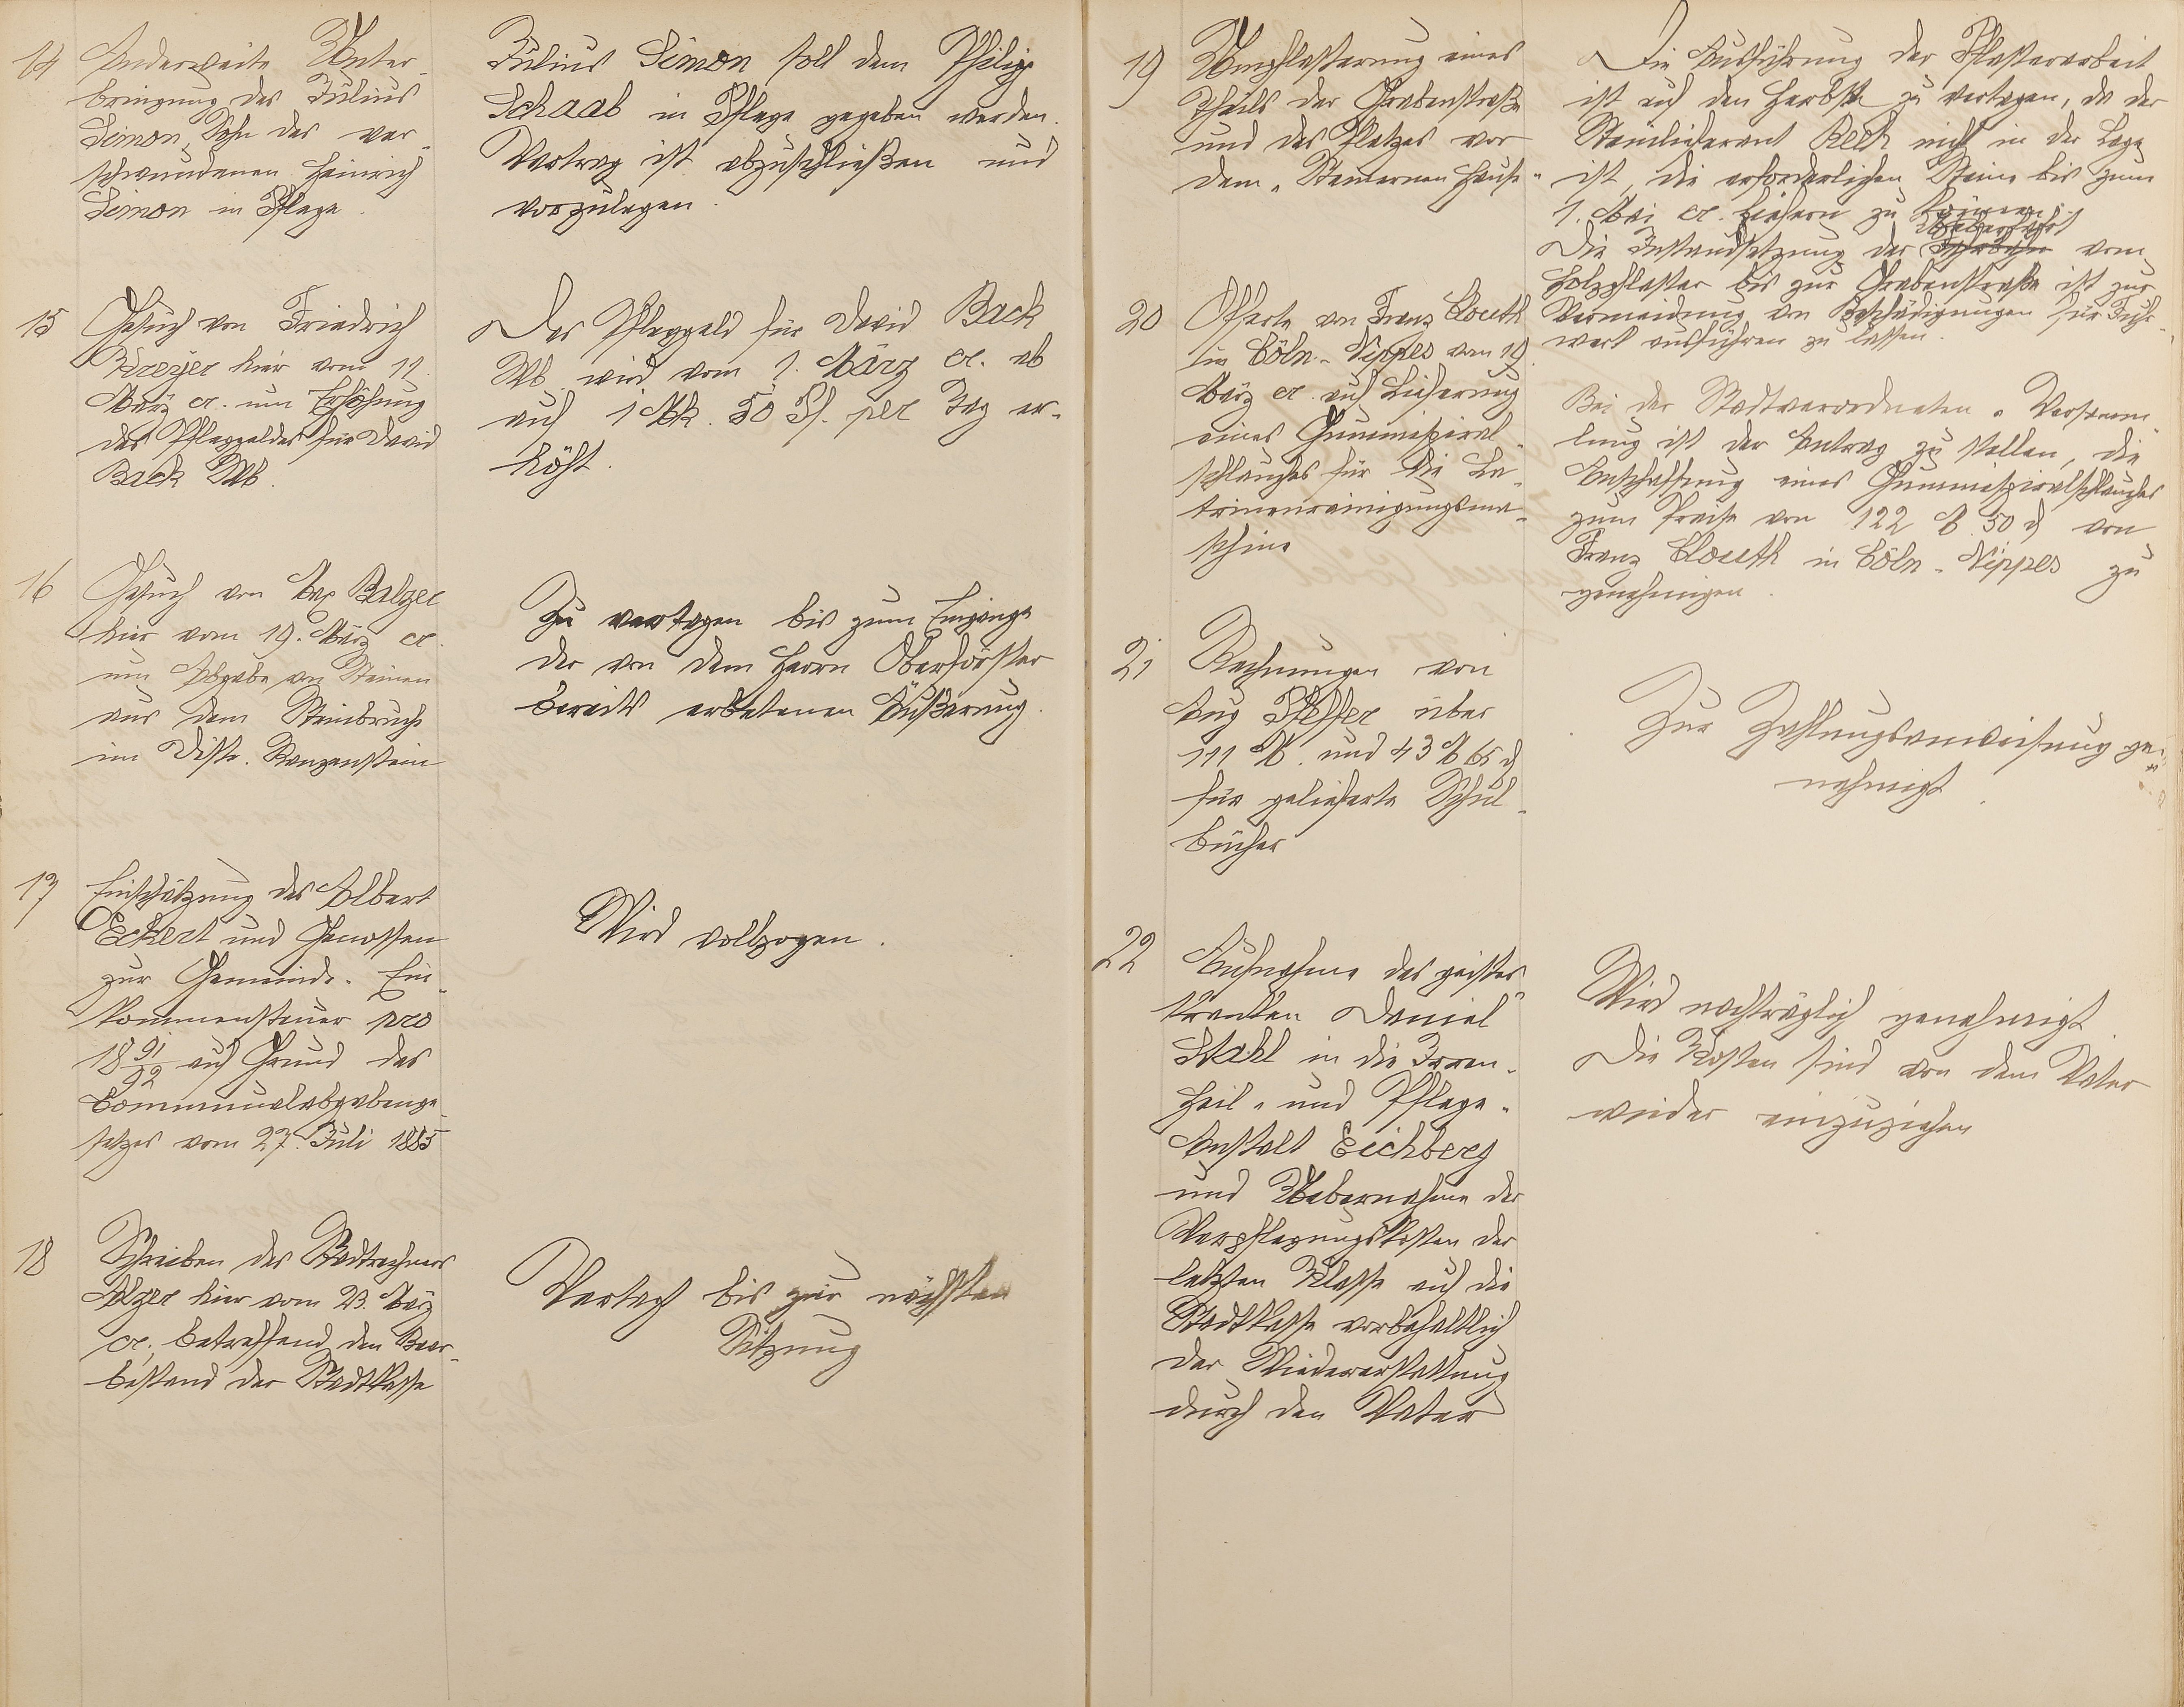 14
Anderweite Unter-
bringung des Julius
Simon, Sohn des ver-
schwundenen Heinrich
Simon in Pflege.
Julius Simon soll dem Philipp
Schaab in Pflege gegeben werden.
Vertrag ist abzuschließen und
vorzulegen.
15
Gesuch von Friedrich
Breyer hier vom 11.
März cr. um Erhöhung
des Pflegegeldes für David
Back Wb.
Das Pflegegeld für David Back
Wb. wird vom 1. März cr. ab
auf 1 Mk. 50 Pf. per Tag er-
höht.
16
Gesuch von Max Balzer
hier vom 19. März cr.
um Abgabe von Steinen
aus dem Steinbruche
im Distr. Ranzenstein
Zu vertagen bis zum Eingange
der von dem Herrn Oberförster
bereits erbetenen Äußerung.
17
Einschätzung des Albert
Eckert und Genossen
zur Gemeinde-Ein-
kommensteuer pro
1891/92 auf Grund des
Communalabgabenge-
setzes vom 27. Juli 1885
Wird vollzogen.
18
Schreiben des Stadtrechners
hier vom 23. März
cr., betreffend den Baar-
bestand der Stadtkasse
Vertagt bis zur nächsten
Sitzung
19
Umpflasterung eines
Theils der Grabenstraße
und des Platzes vor
dem "Steinernen Hause"
Die Ausführung der Pflasterarbeit
ist auf den Herbst zu vertagen, da der
Steinlieferant Reeh nicht in der Lage
ist, die erforderlichen Steine bis zum
1. Mai cr. liefern zu können.
Ueberfahrt
Die Instandsetzung der Fahrbahn vom
Holzpflaster bis zur Grabenstraße ist zur
Vermeidung von Beschädigungen für Fuhr-
werk ausführen zu lassen.
20
Offerte von Franz Clouth
in Cöln-Nippes vom 19.
März cr. auf Lieferung
eines Gummispiral-
schlauches für die La-
trinenreinigungsma-
schine
Bei der Stadtverordneten-Versamm-
lung ist der Antrag zu stellen, die
Anschaffung eines Gummispiralschlauches
zum Preise von 122 M 50 d von
Franz Clouth in Cöln-Nippes zu
genehmigen.
21
Rechnungen von
Aug Pfeffer über
111 M. und 43 M 65 d
für gelieferte Schul-
bücher
Zur Zahlungsanweisung ge-
nehmigt.
22
Aufnahme des geistes-
kranken Daniel
Stahl in die Irren-
Heil- und Pflege-
Anstalt Eichberg
und Uebernahme der
Verpflegungskosten der
letzten Klasse auf die
Stadtkasse vorbehaltlich
der Wiedererstattung
durch den Vater
Wird nachträglich genehmigt.
Die Kosten sind von dem Vater
wieder einzuziehen